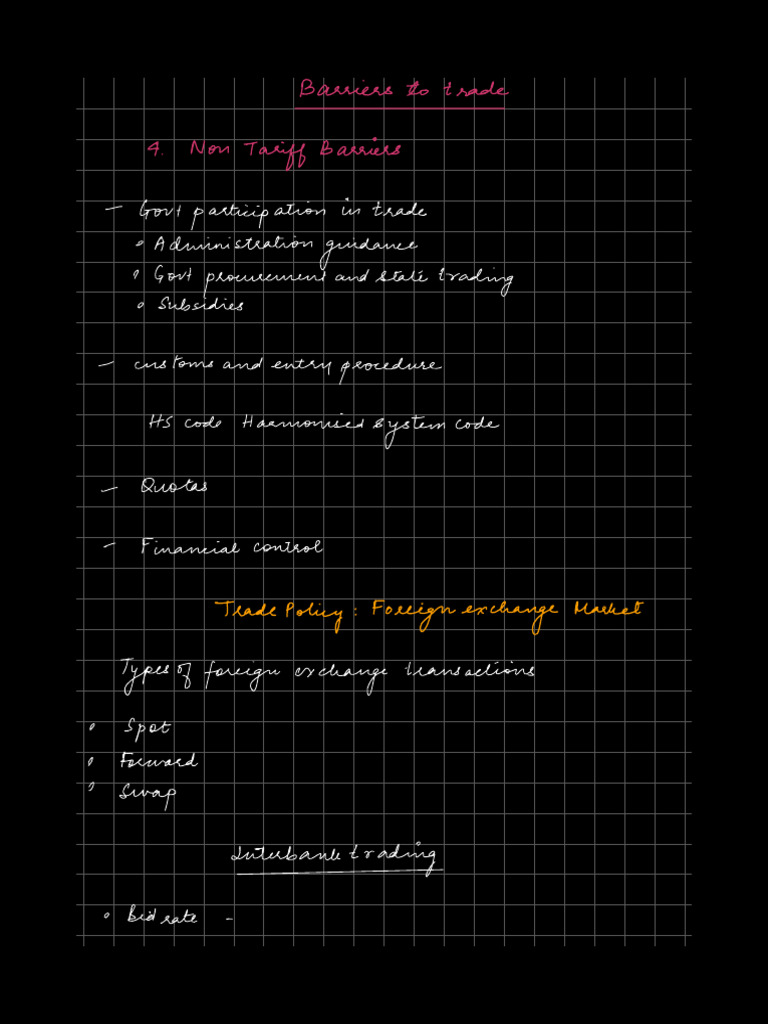 Barriers to trade
4. Non Tariff Barriers
- Govt participation in trade
• Administration guidance
• Govt procurement and state trading
• Subsidies
- customs and entry procedure
HS code Harmonised system code
- Quotas
- Financial control
Trade Policy : Foreign exchange Market
Types of foreign exchange transactions
• Spot
• Forward
• Swap
Interbank trading
• Bid rate -